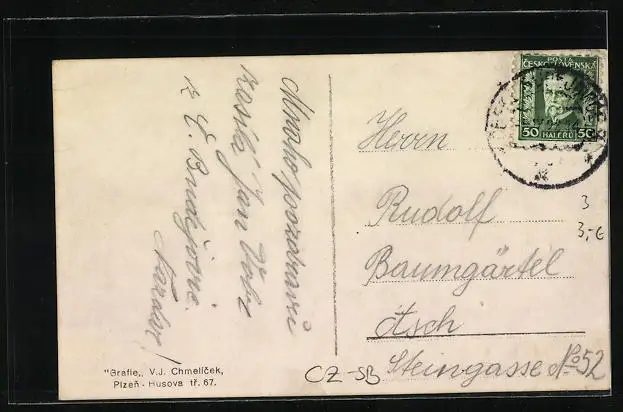 Mnoho pozdravů
zasílá Jan
z Č. Budějovic.
Nazdar!
"Grafie„ V.J. Chmelíček,
Plzeň - Husova tř. 67.
POŠTA
ČESKOSLOVENSKÁ
50 HALÉŘŮ 50
Herrn
Rudolf
Baumgärtel
Asch
Steingasse No 52
3
3,-€
CZ-SB